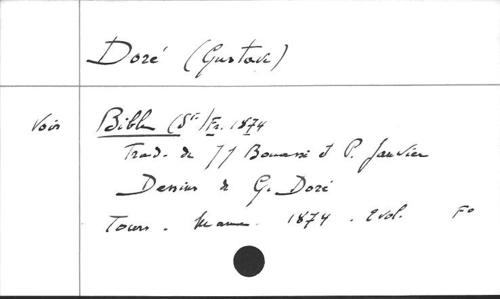 Doré (Gustave)
Voir Bible (Ste) Fr. 1874
Trad. de JJ Bourassé et P. Janvier
Dessins de G. Doré
Tours. Mame. 1874. 2 vol. Fo